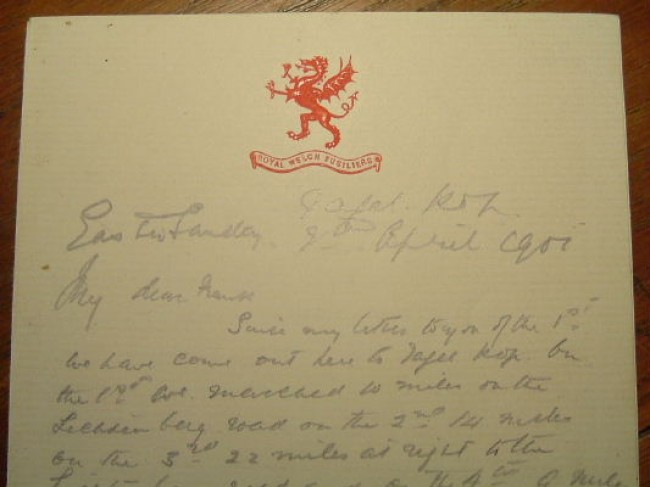 ROYAL WELCH FUSILIERS
Tafel Kop
Easter Sunday 9th April 1901
My dear Frank
Since my letter to you of the 1st
we have come out here to Tafel Kop. On
the 1st we marched 10 miles on the
road on the 2nd 14 miles
on the 3rd 22 miles at night to the
on the 4th 6 miles